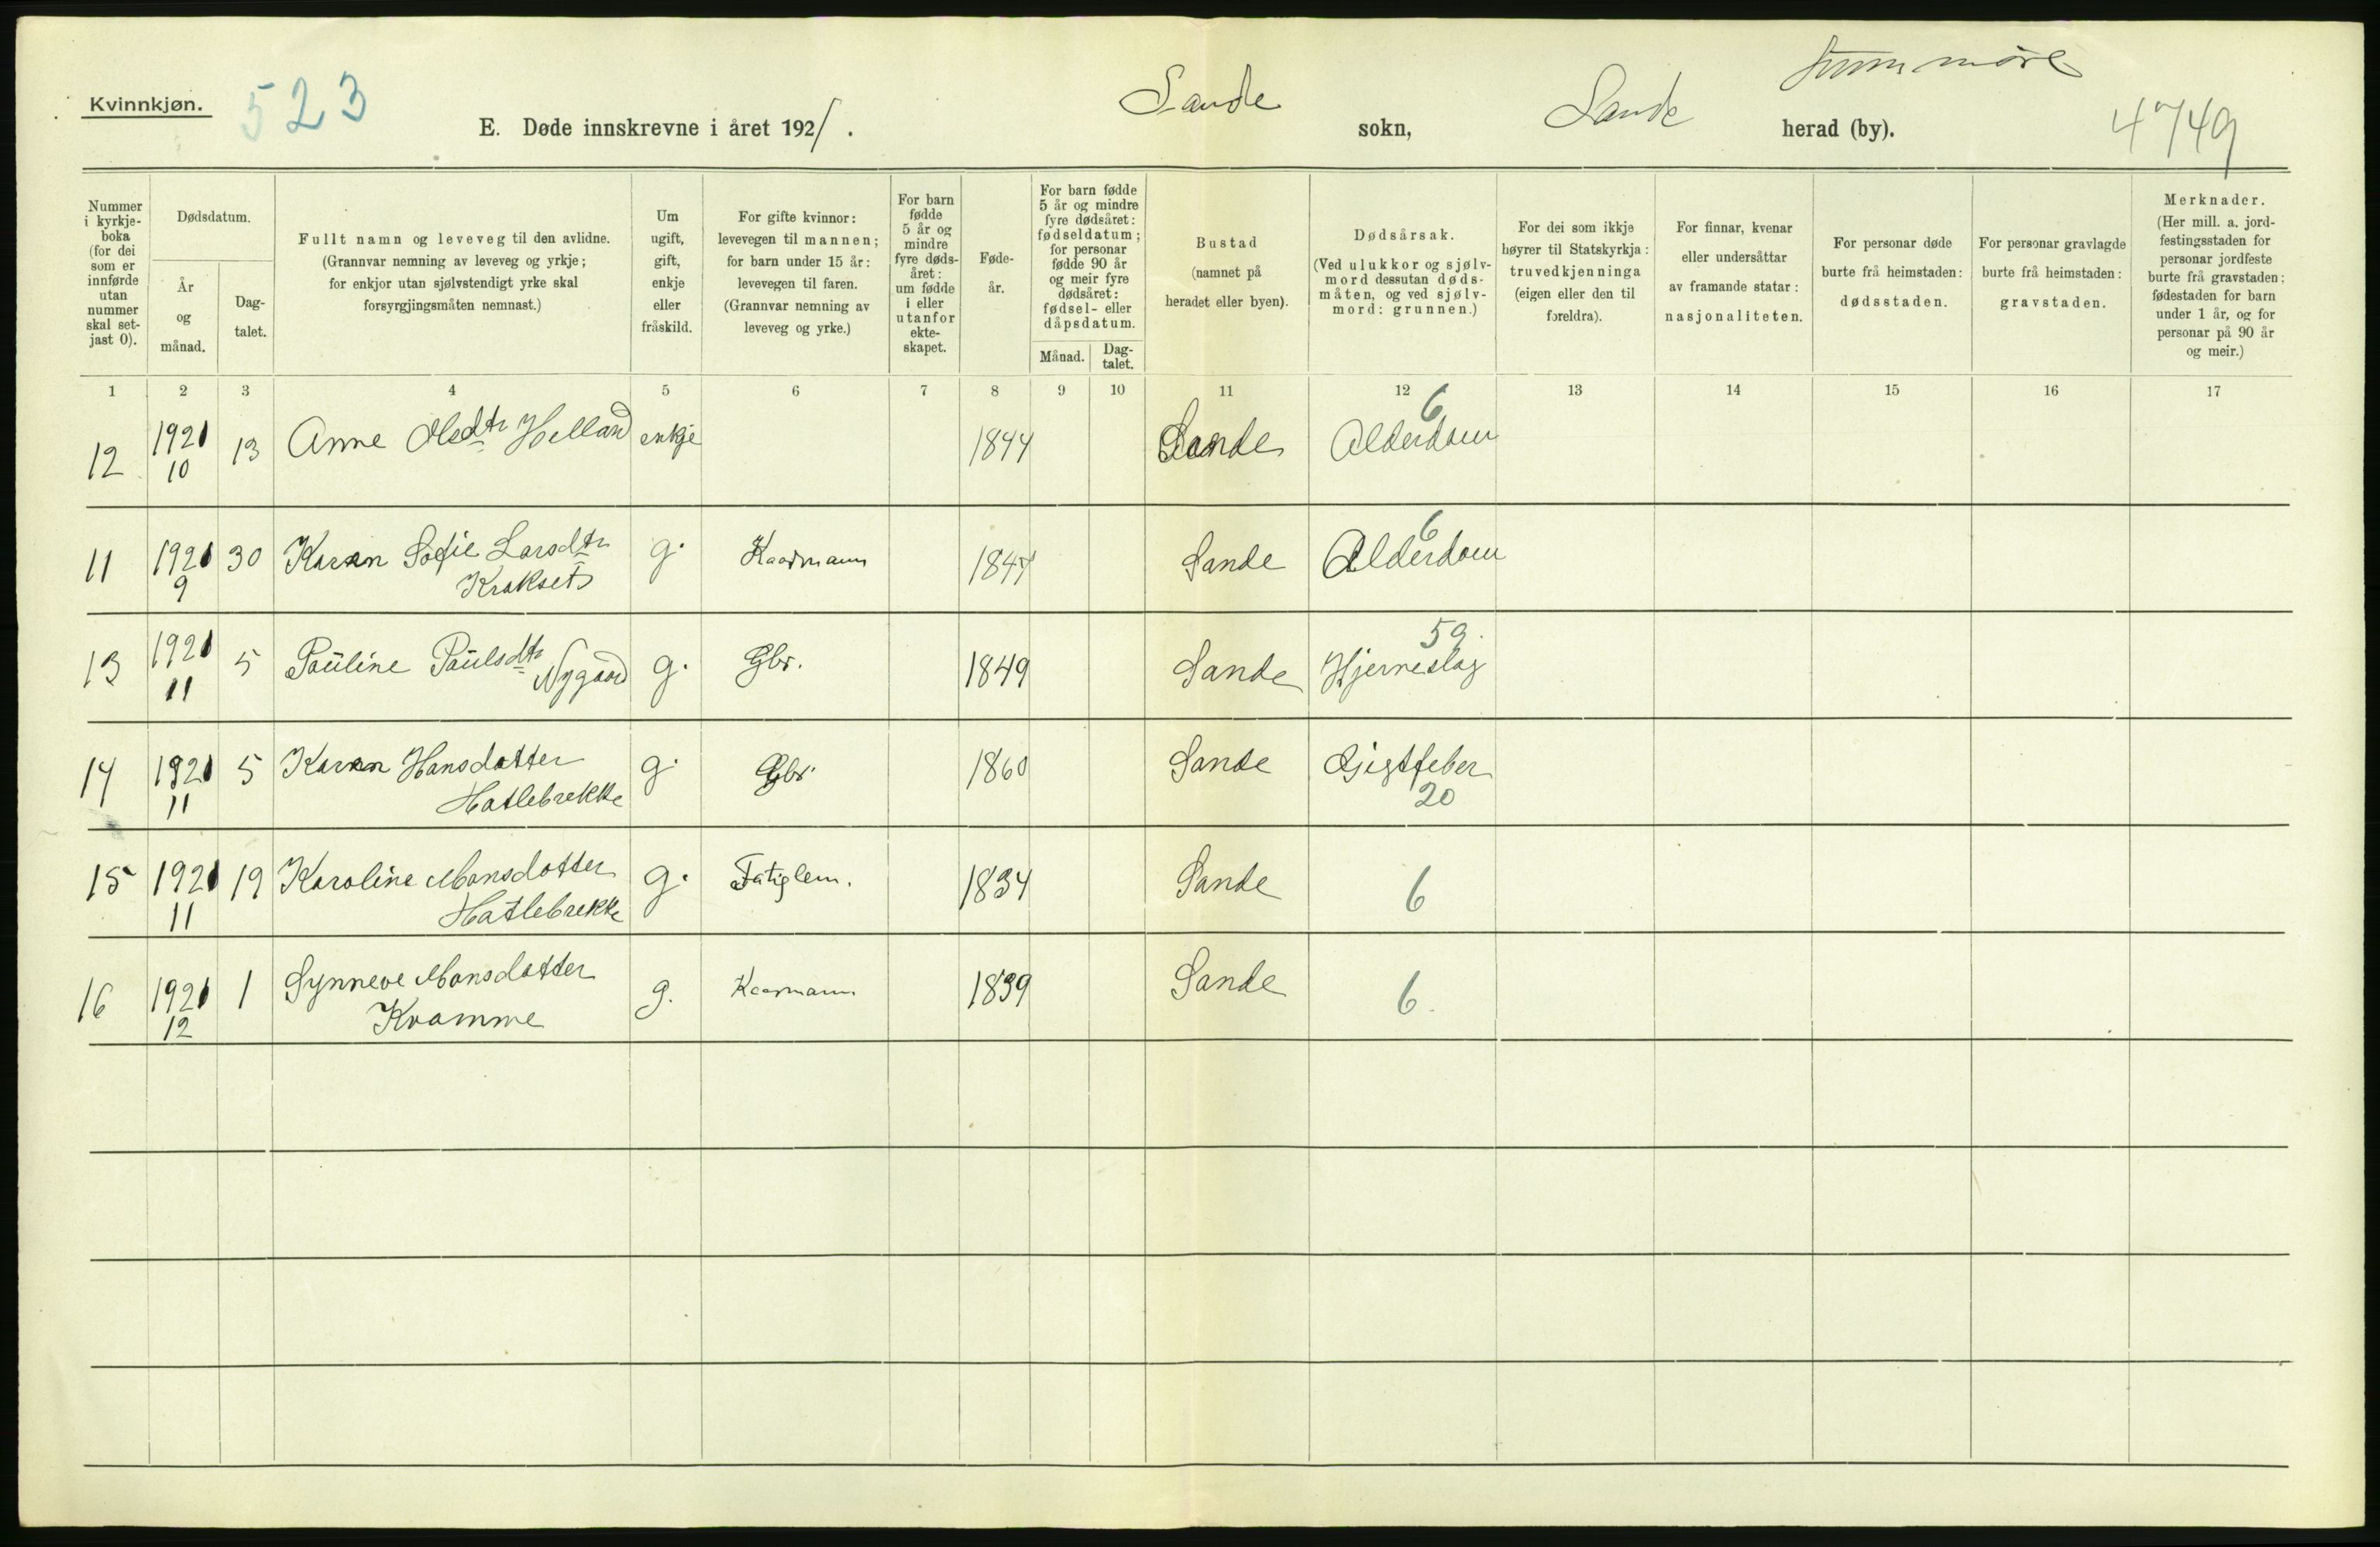 Kvinnkjøn.
523
E. Døde innskrevne i året 1921.
Sande sokn,
Sande herad (by).
Sunnmøre
4749
Nummer i kyrkje-boka (for dei som er innførde utan nummer skal set-jast 0).
Dødsdatum.
År og månad.
Dag-talet.
Fullt namn og leveveg til den avlidne. (Grannvar nemning av leveveg og yrkje; for enkjor utan sjølvstendigt yrke skal forsyrgjingsmåten nemnast.)
Um ugift, gift, enkje eller fråskild.
For gifte kvinnor: levevegen til mannen; for barn under 15 år: levevegen til faren. (Grannvar nemning av leveveg og yrke.)
For barn fødde 5 år og mindre fyre døds-året: um fødde i eller utanfor ekte-skapet.
Føde-år.
For barn fødde 5 år og mindre fyre dødsåret: fødseldatum; for personar fødde 90 år og meir fyre dødsåret: fødsel- eller dåpsdatum.
Månad.
Dag-talet.
Bustad (namnet på heradet eller byen).
Dødsårsak. (Ved ulukkor og sjølv-mord dessutan døds-måten, og ved sjølv-mord: grunnen.)
For dei som ikkje høyrer til Statskyrkja: truvedkjenninga (eigen eller den til foreldra).
For finnar, kvenar eller undersåttar av framande statar: nasjonaliteten.
For personar døde burte frå heimstaden: dødsstaden.
For personar gravlagde burte frå heimstaden: gravstaden.
Merknader. (Her mill. a. jord-festingsstaden for personar jordfeste burte frå gravstaden; fødestaden for barn under 1 år, og for personar på 90 år og meir.)
1 2 3 4 5 6 7 8 9 10 11 12 13 14 15 16 17
12 1921 10 13 Anne Olsdtr Helland enkje 1844 Sande Alderdom 6
11 1921 9 30 Karen Sofie Larsdtr Krakset g. Kaarmann Sande Alderdom 6
13 1921 11 5 Pauline Paulsdtr Nygaard g. Gbr. 1849 Sande Hjerneslag 59.
14 1921 11 5 Karen Hansdatter Hatlebrekke g. Gbr. 1860 Sande Gigtfeber 20
15 1921 11 19 Karoline Monsdatter Hatlebrekke g. Fatiglem. 1834 Sande 6
16 1921 12 1 Synneve Monsdatter Kvamme g. Kaarmann 1839 Sande 6.